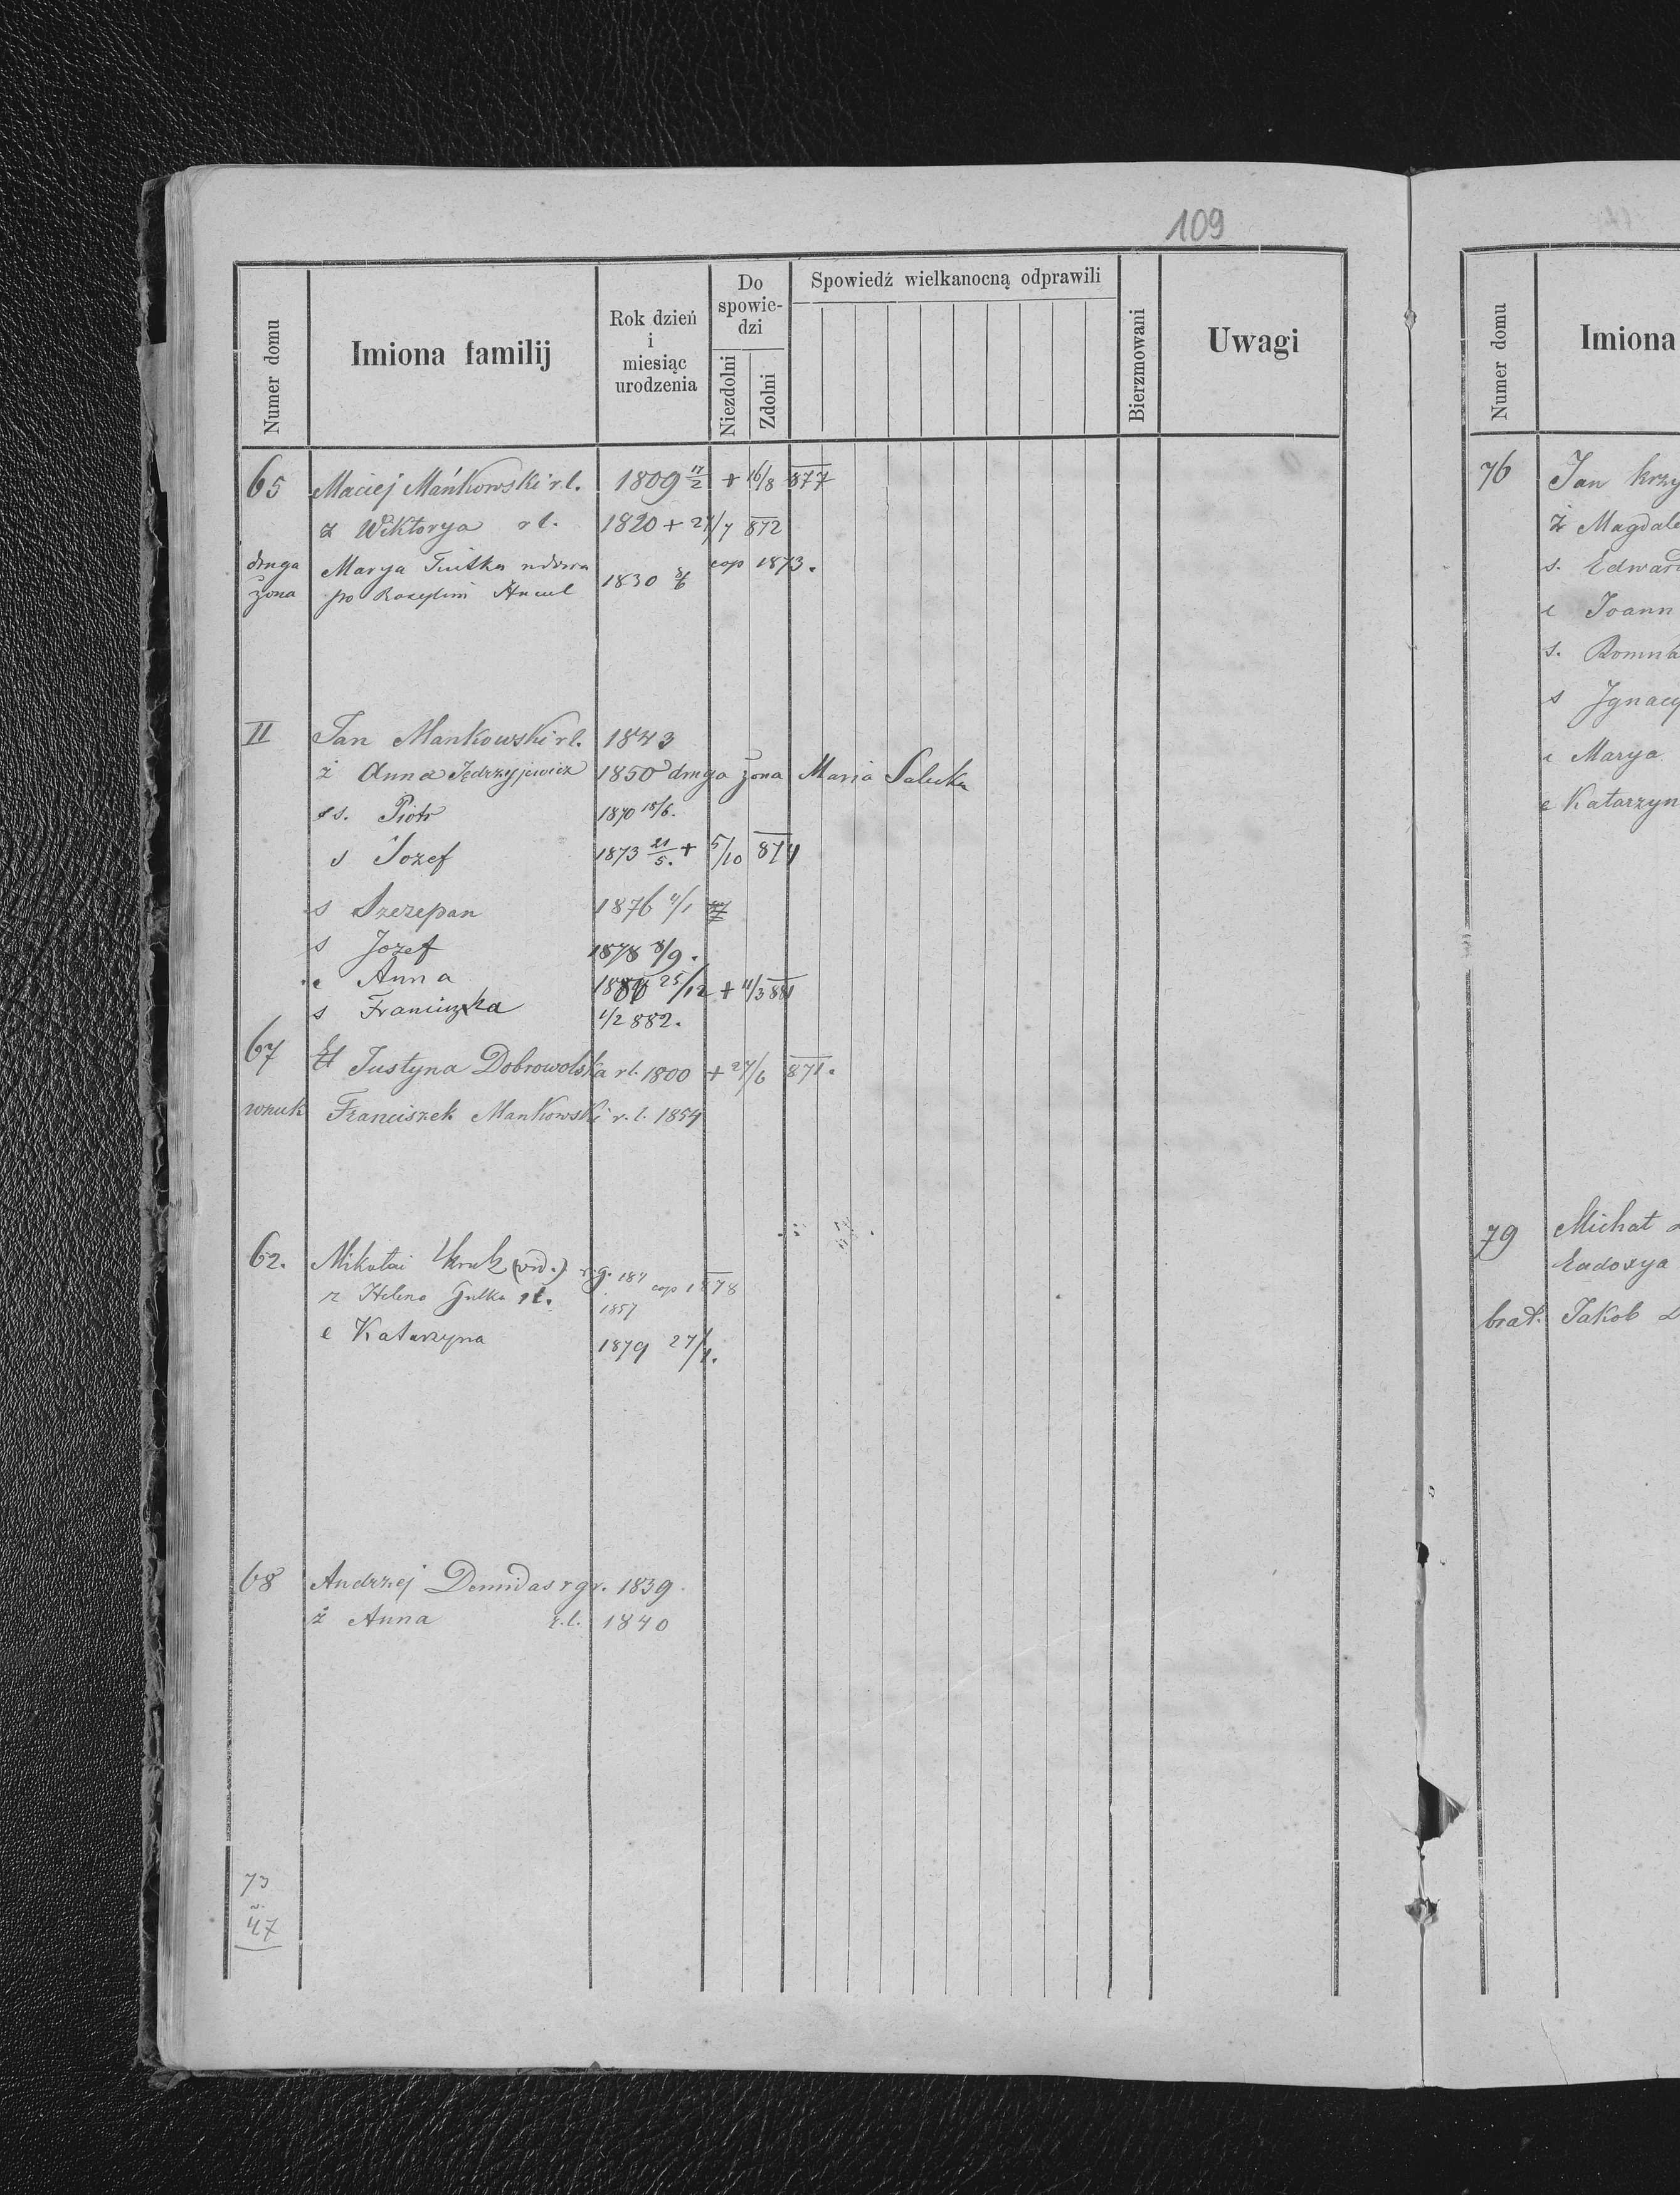 109
Numer domu
Imiona familij
Rok dzień i miesiąc urodzenia
Do spowiedzi
Niezdolni
Zdolni
Spowiedź wielkanocną odprawili
Bierzmowani
Uwagi
65 Maciej Mańkowski r.l. 1809 17/2 + 16/8 877
ż Wiktorya r l. 1820 + 27/7 872
druga żona Marya wdowa cop 1873.
po 1830
II Jan Mankowski r l. 1843
ż Anna Jędrzyjewicz 1850 druga żona Maria
s. Piotr 1870 18/6.
s Jozef 1873 21/5. + 5/10 874
s Szczepan 1876
s Jozef 1878 8/9.
c Anna 25/12 + 11/3 881
s Franciszka 1/2 882.
67 Justyna Dobrowolska r l. 1800 + 27/6 871.
wnuk Franciszek Mankowski r. l. 1854
62. Mikołai Kruk (wd.) r.g. 184 cop 1878
Helena Gulka r l. 1857
c Katarzyna 1879 27/1.
68 Andrzej Demidas r gr. 1839
ż Anna r. l. 1840
73
47
Numer domu
Imiona
76 Jan Krzy
ż Magdale
s. Edward
c Joann
s.
s Ignacy
c Marya
c Katarzyn
79 Michał
Eudoxya
brat. Jakob